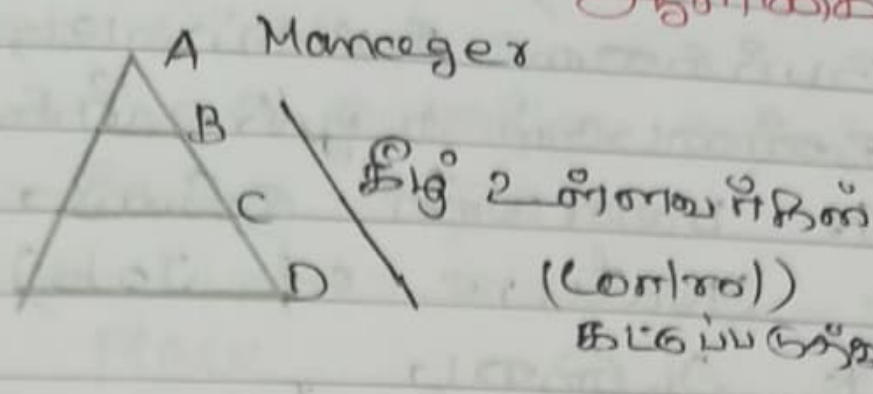 A Manceger
B
கீழ் உள்ளவர்கள்
C
D
(Control)
கட்டுப்படுத்த